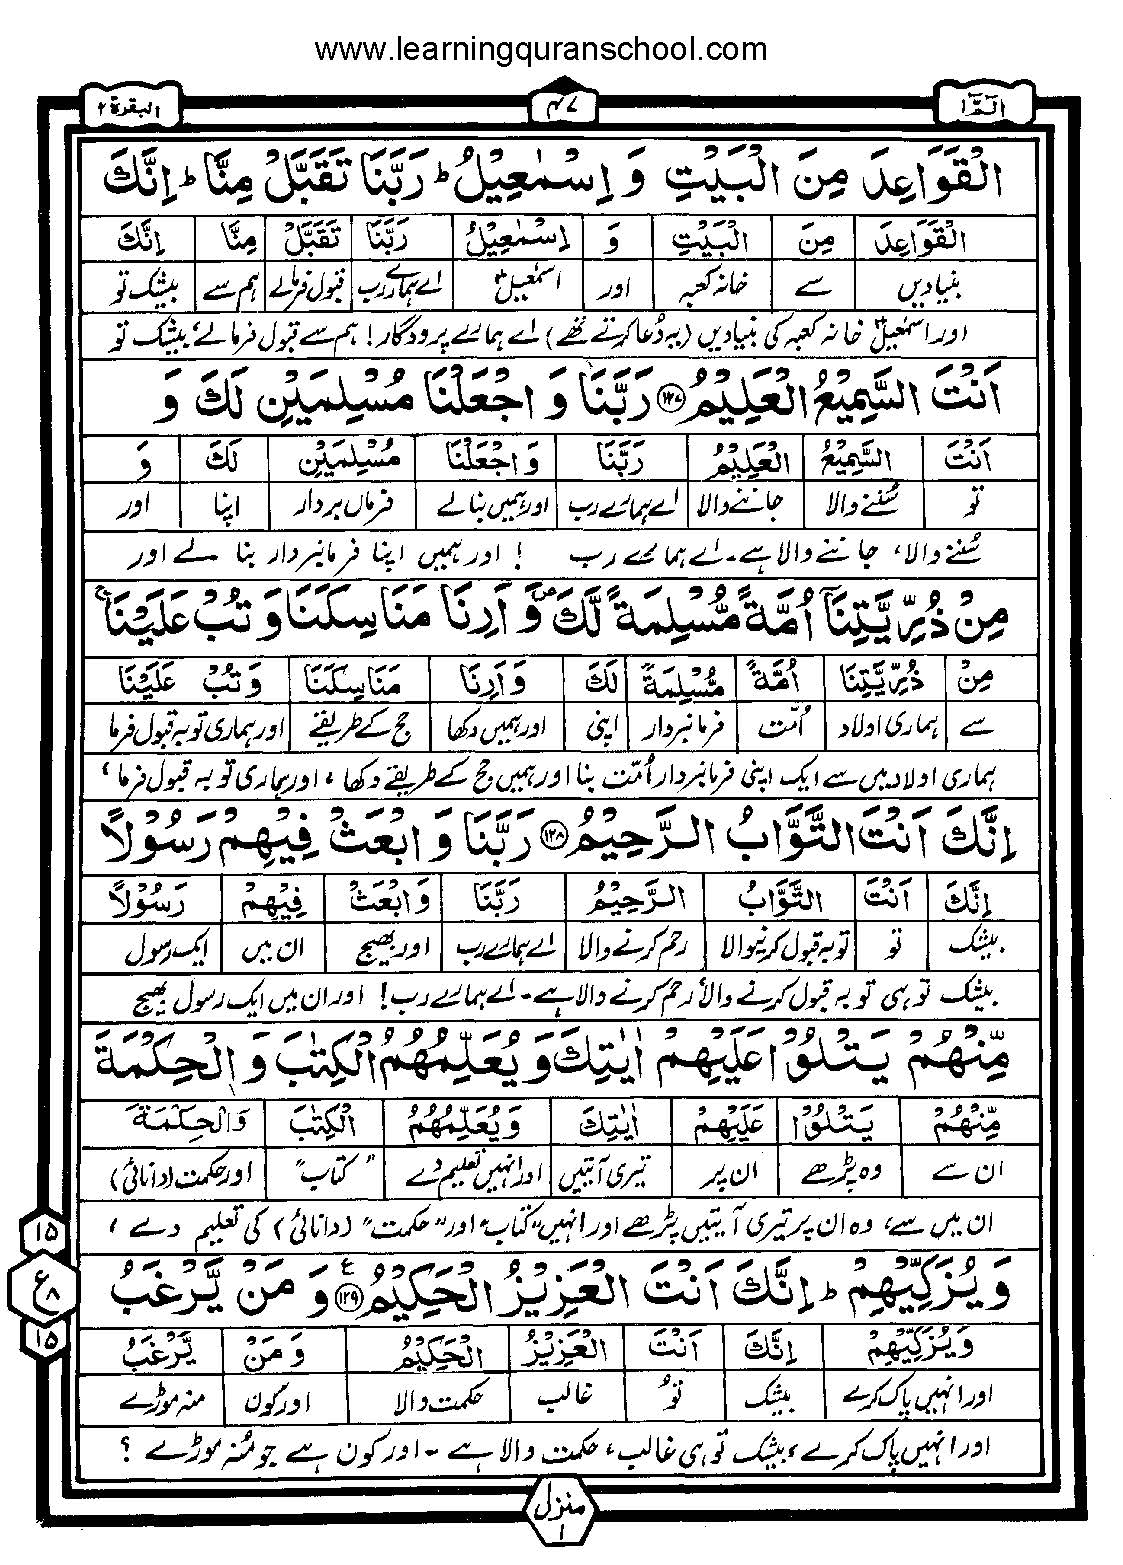 www.learningquranschool.com
الٓمّٓ ١
٤٧
البقرة ٢
الْقَوَاعِدَ مِنَ الْبَيْتِ وَ اِسْمٰعِيْلُ ؕ رَبَّنَا تَقَبَّلْ مِنَّا ؕ اِنَّكَ
الْقَوَاعِدَ مِنَ الْبَيْتِ وَ اِسْمٰعِيْلُ رَبَّنَا تَقَبَّلْ مِنَّا اِنَّكَ
بنیادیں سے خانہ کعبہ اور اسمٰعیلؑ اے ہمارے رب قبول فرمالے ہم سے بیشک تو
اور اسمٰعیلؑ خانہ کعبہ کی بنیادیں (یہ دُعا کرتے تھے) اے ہمارے پروردگار! ہم سے قبول فرمالے، بیشک تو
اَنْتَ السَّمِيْعُ الْعَلِيْمُ ۝١٢٧ رَبَّنَا وَ اجْعَلْنَا مُسْلِمَيْنِ لَكَ وَ
اَنْتَ السَّمِيْعُ الْعَلِيْمُ رَبَّنَا وَ اجْعَلْنَا مُسْلِمَيْنِ لَكَ وَ
تو سُننے والا جاننے والا اے ہمارے رب اور ہمیں بنالے فرماں بردار اپنا اور
سُننے والا، جاننے والا ہے۔ اے ہمارے رب ! اور ہمیں اپنا فرمانبردار بنا لے اور
مِنْ ذُرِّيَّتِنَاۤ اُمَّةً مُّسْلِمَةً لَّكَ ۪ وَ اَرِنَا مَنَاسِكَنَا وَ تُبْ عَلَيْنَا ۚ
مِنْ ذُرِّيَّتِنَا اُمَّةً مُّسْلِمَةً لَكَ وَ اَرِنَا مَنَاسِكَنَا وَ تُبْ عَلَيْنَا
سے ہماری اولاد اُمّت فرمانبردار اپنی اور ہمیں دکھا حج کے طریقے اور ہماری توبہ قبول فرما
ہماری اولاد میں سے ایک اپنی فرمانبردار اُمّت بنا اور ہمیں حج کے طریقے دکھا، اور ہماری توبہ قبول فرما،
اِنَّكَ اَنْتَ التَّوَّابُ الرَّحِيْمُ ۝١٢٨ رَبَّنَا وَ ابْعَثْ فِيْهِمْ رَسُوْلًا
اِنَّكَ اَنْتَ التَّوَّابُ الرَّحِيْمُ رَبَّنَا وَ ابْعَثْ فِيْهِمْ رَسُوْلًا
بیشک تو توبہ قبول کرنیوالا رحم کرنے والا اے ہمارے رب اور بھیج ان میں ایک رسول
بیشک تو ہی توبہ قبول کرنے والا، رحم کرنے والا ہے۔ اے ہمارے رب! اور ان میں ایک رسول بھیج
مِّنْهُمْ يَتْلُوْا عَلَيْهِمْ اٰيٰتِكَ وَ يُعَلِّمُهُمُ الْكِتٰبَ وَ الْحِكْمَةَ
مِّنْهُمْ يَتْلُوْا عَلَيْهِمْ اٰيٰتِكَ وَ يُعَلِّمُهُمُ الْكِتٰبَ وَالْحِكْمَةَ
ان سے وہ پڑھے ان پر تیری آیتیں اور انہیں تعلیم دے "کتاب" اور حکمت (دانائی)
ان میں سے، وہ ان پر تیری آیتیں پڑھے اور انہیں "کتاب" اور "حکمت" (دانائی) کی تعلیم دے ،
وَ يُزَكِّيْهِمْ ؕ اِنَّكَ اَنْتَ الْعَزِيْزُ الْحَكِيْمُ ۝١٢٩ ع وَ مَنْ يَّرْغَبُ
وَ يُزَكِّيْهِمْ اِنَّكَ اَنْتَ الْعَزِيْزُ الْحَكِيْمُ وَ مَنْ يَّرْغَبُ
اور انہیں پاک کرے بیشک تو غالب حکمت والا اور کون منہ موڑے
اور انہیں پاک کرے، بیشک تو ہی غالب، حکمت والا ہے ۔ اور کون ہے جو مُنہ موڑے ؟
١٥
ع ٨
١٥
منزل ١